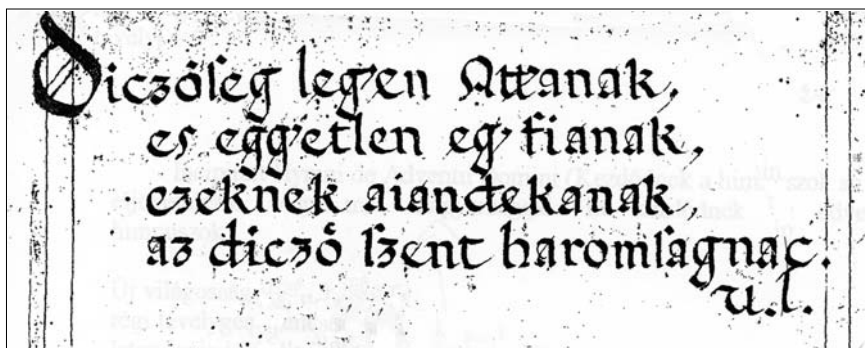 Diczöſeg leg'en Att'anak,
es egg'etlen eg' fianak,
ezeknek aiandekanak,
az diczö ſzent haromſagnac.
u.l.